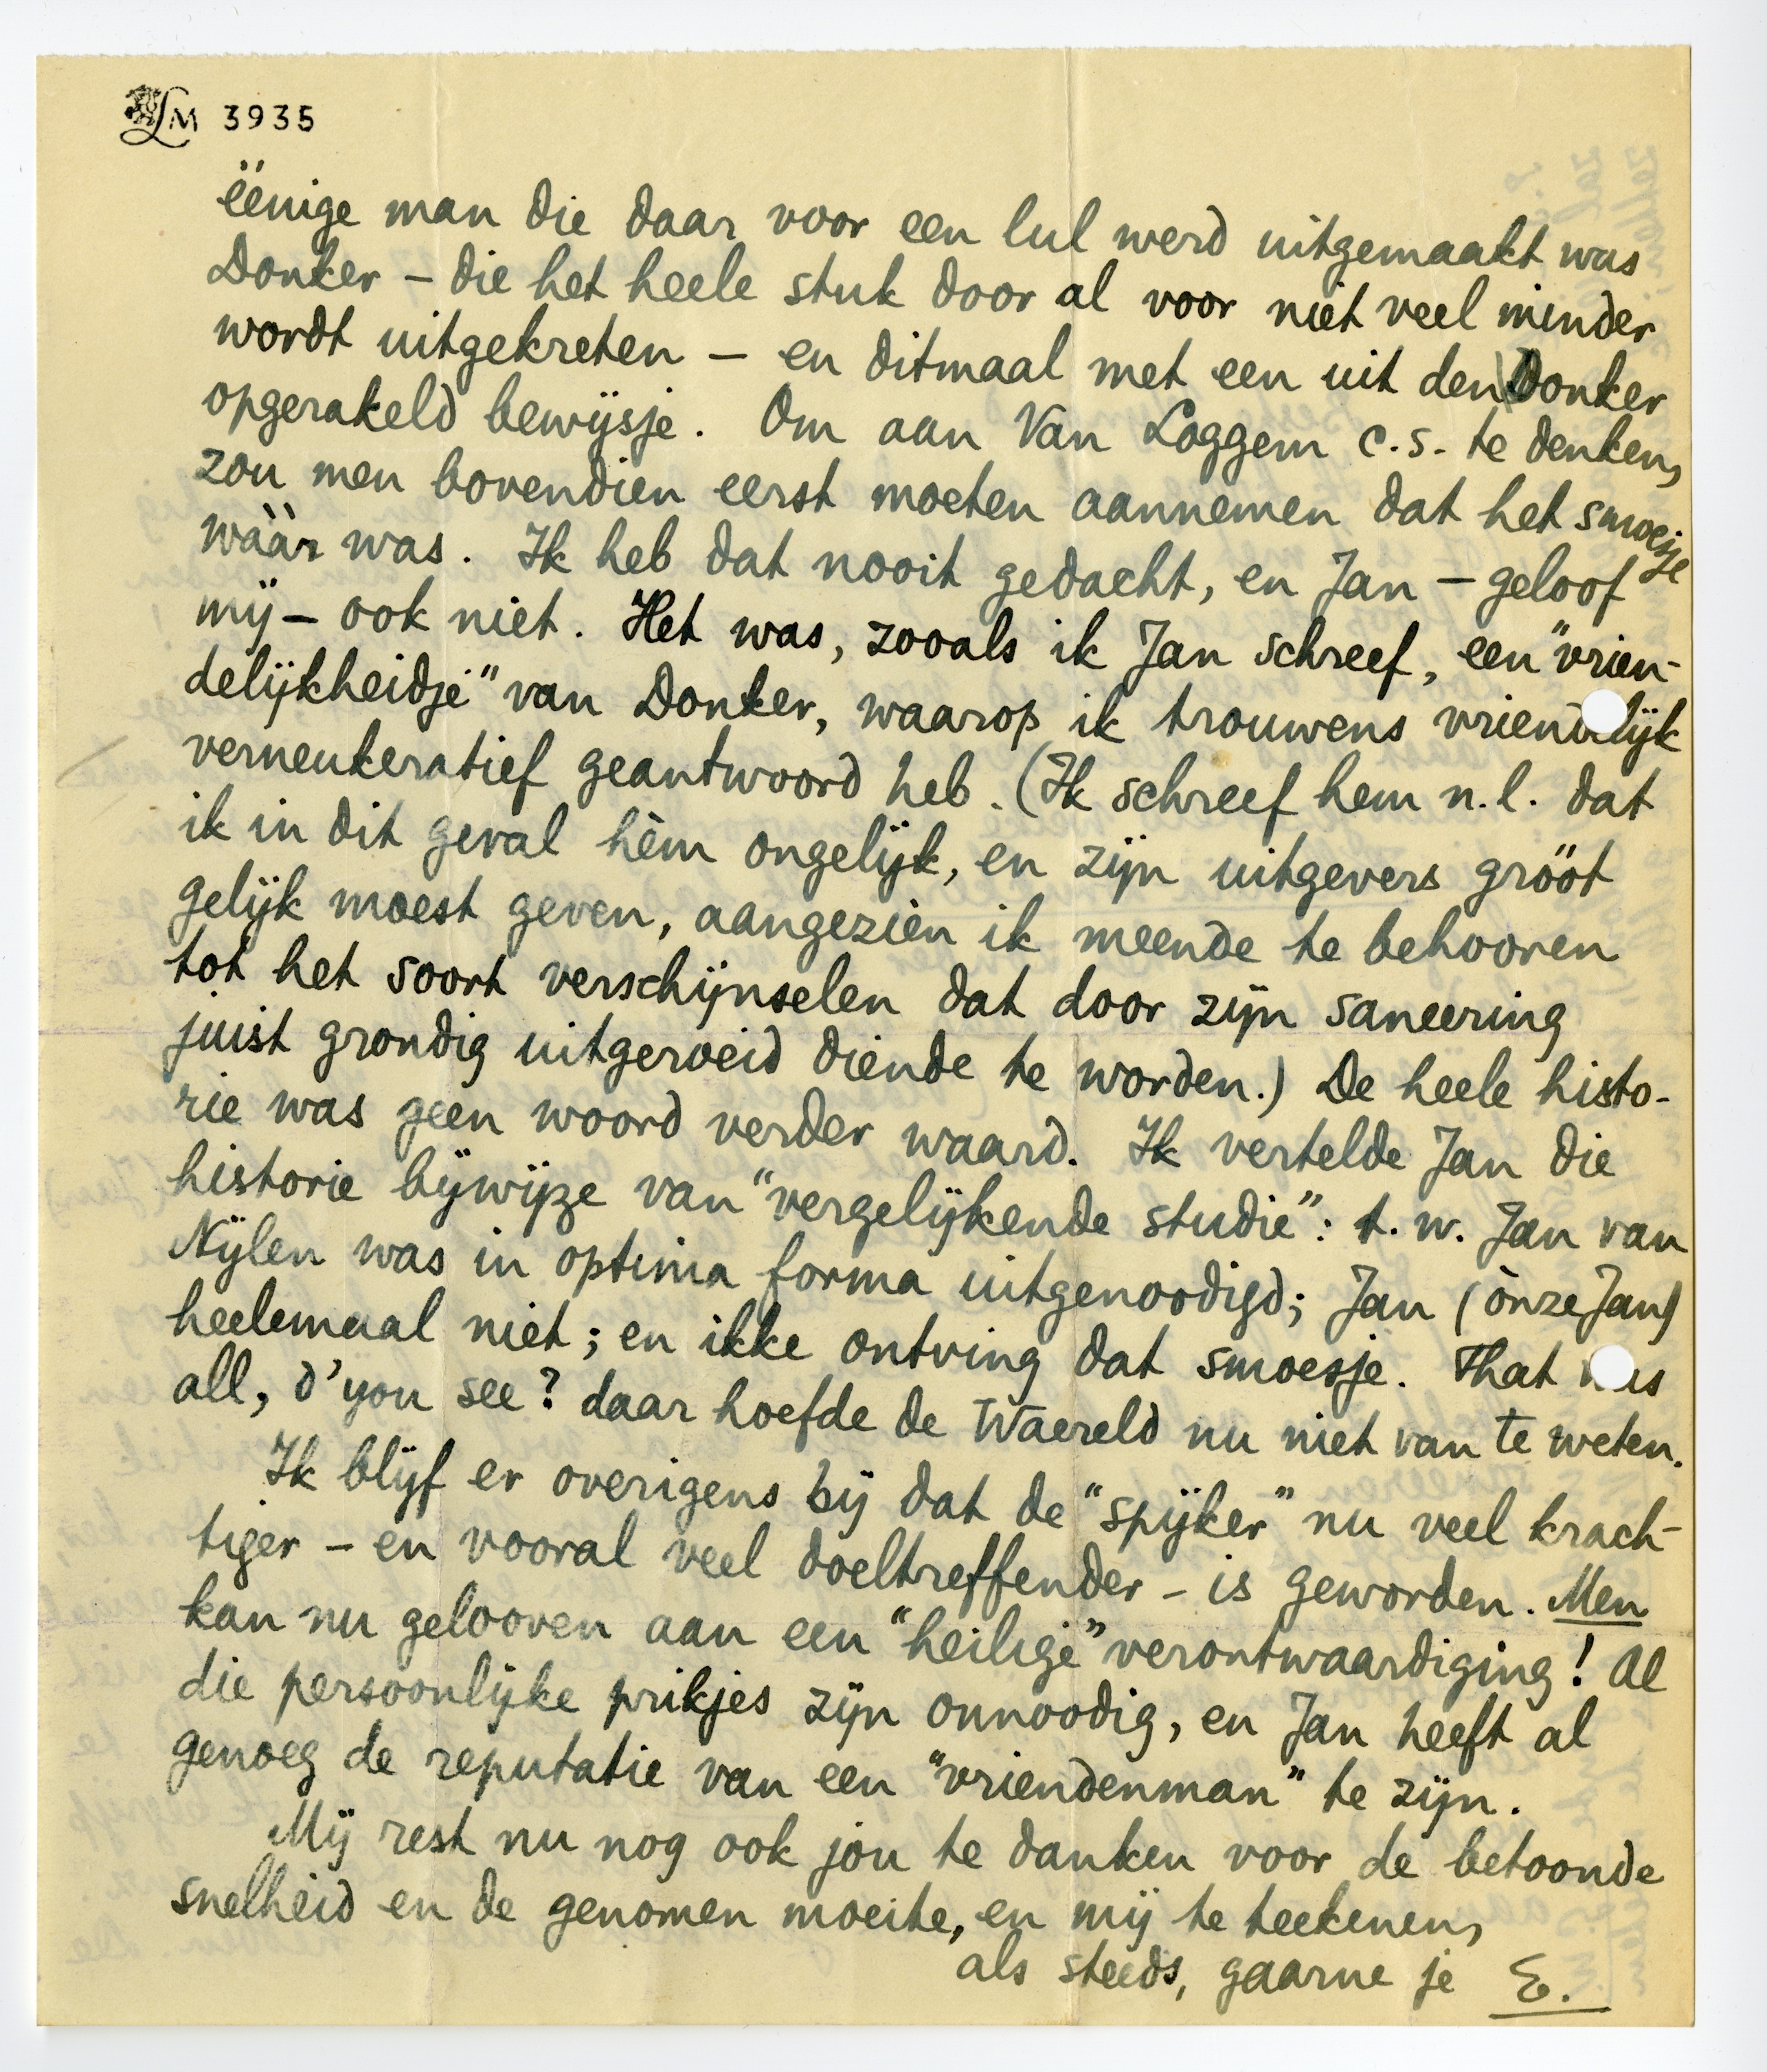 LM 3935
ëënige man die daar voor een lul werd uitgemaakt was
Donker – die het heele stuk door al voor niet veel minder
wordt uitgekreten – en ditmaal met een uit den Donker
opgerakeld bewijsje. Om aan Van Loggem c.s. te denken,
zou men bovendien eerst moeten aannemen dat het smoesje
wààr was. Ik heb dat nooit gedacht, en Jan – geloof
mij – ook niet. Het was, zooals ik Jan schreef, een "vrien-
delijkheidje" van Donker, waarop ik trouwens vriendelijk
verneukeratief geantwoord heb. (Ik schreef hem n.l. dat
ik in dit geval hèm ongelijk, en zijn uitgevers gröót
gelijk moest geven, aangezien ik meende te behooren
tot het soort verschijnselen dat door zijn saneering
juist grondig uitgeroeid diende te worden.) De heele histo-
rie was geen woord verder waard. Ik vertelde Jan die
historie bijwijze van "vergelijkende studie": t.w. Jan van
Nijlen was in optima forma uitgenoodigd; Jan (ònze Jan)
heelemaal niet; en ikke ontving dat smoesje. That was
all, d'you see? daar hoefde de Waereld nu niet van te weten.
Ik blijf er overigens bij dat de "spijker" nu veel krach-
tiger – en vooral veel doeltreffender – is geworden. Men
kan nu gelooven aan een "heilige" verontwaardiging! Al
die persoonlijke prikjes zijn onnoodig, en Jan heeft al
genoeg de reputatie van een "vriendenman" te zijn.
Mij rest nu nog ook jou te danken voor de betoonde
snelheid en de genomen moeite, en mij te teekenen,
als steeds, gaarne je E.